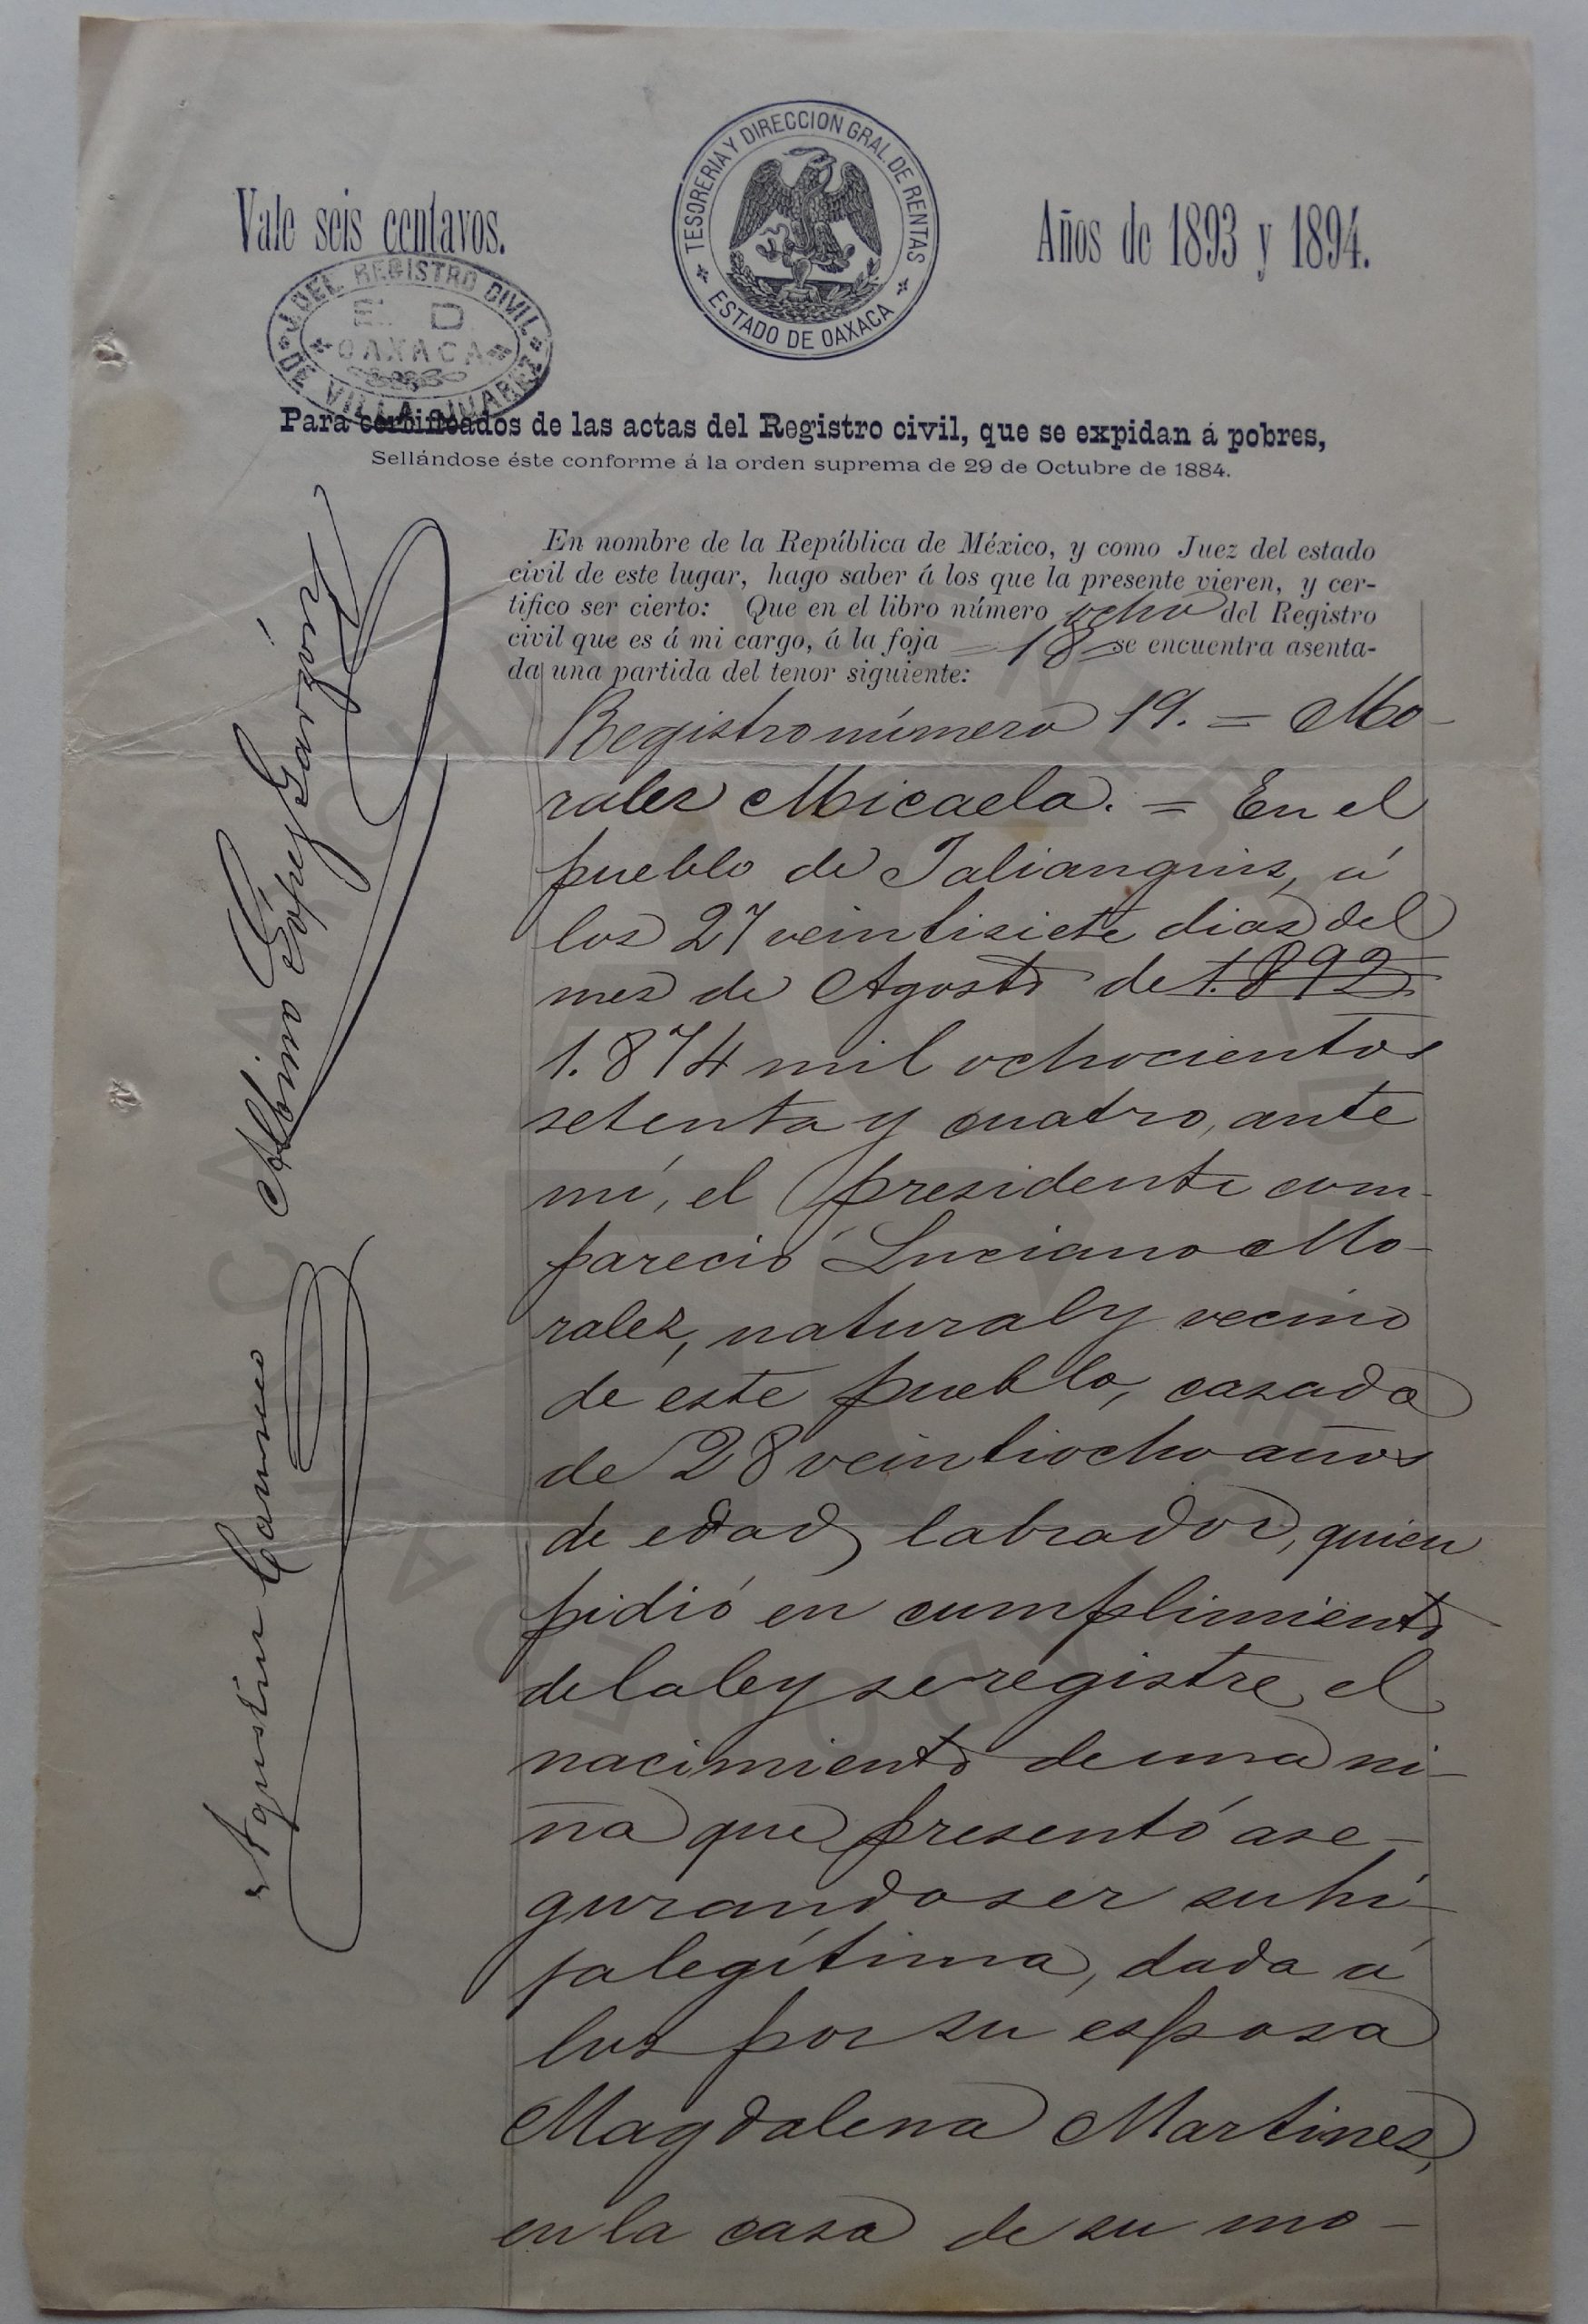 Vale seis centavos.
TESORERIA Y DIRECCION GRAL. DE RENTAS
ESTADO DE OAXACA
Años de 1893 y 1894.
J. DEL REGISTRO CIVIL
E. D.
OAXACA
DE VILLA JUAREZ
Para certificados de las actas del Registro civil, que se expidan á pobres,
Sellándose éste conforme á la orden suprema de 29 de Octubre de 1884.
En nombre de la República de México, y como Juez del estado
civil de este lugar, hago saber á los que la presente vieren, y cer-
tifico ser cierto: Que en el libro número ocho del Registro
civil que es á mi cargo, á la foja = 18 = se encuentra asenta-
da una partida del tenor siguiente:
Registro número 19. = Mo-
rales Micaela. = En el
pueblo de Talianguis, á
los 27 veintisiete dias del
mes de Agosto de 1.892
1.874 mil ochocientos
setenta y cuatro, ante
mí, el presidente com-
pareció Luciano Mo-
ralez, natural y vecino
de este pueblo, casado
de 28 veintiocho años
de edad, labrador, quien
pidió en cumplimiento
de la ley se registre el
nacimiento de una ni-
ña que presentó ase-
gurando ser su hi-
ja legítima, dada á
luz por su esposa
Magdalena Martines,
en la casa de su mo-
Albino López Garzón
Agustin Cameo